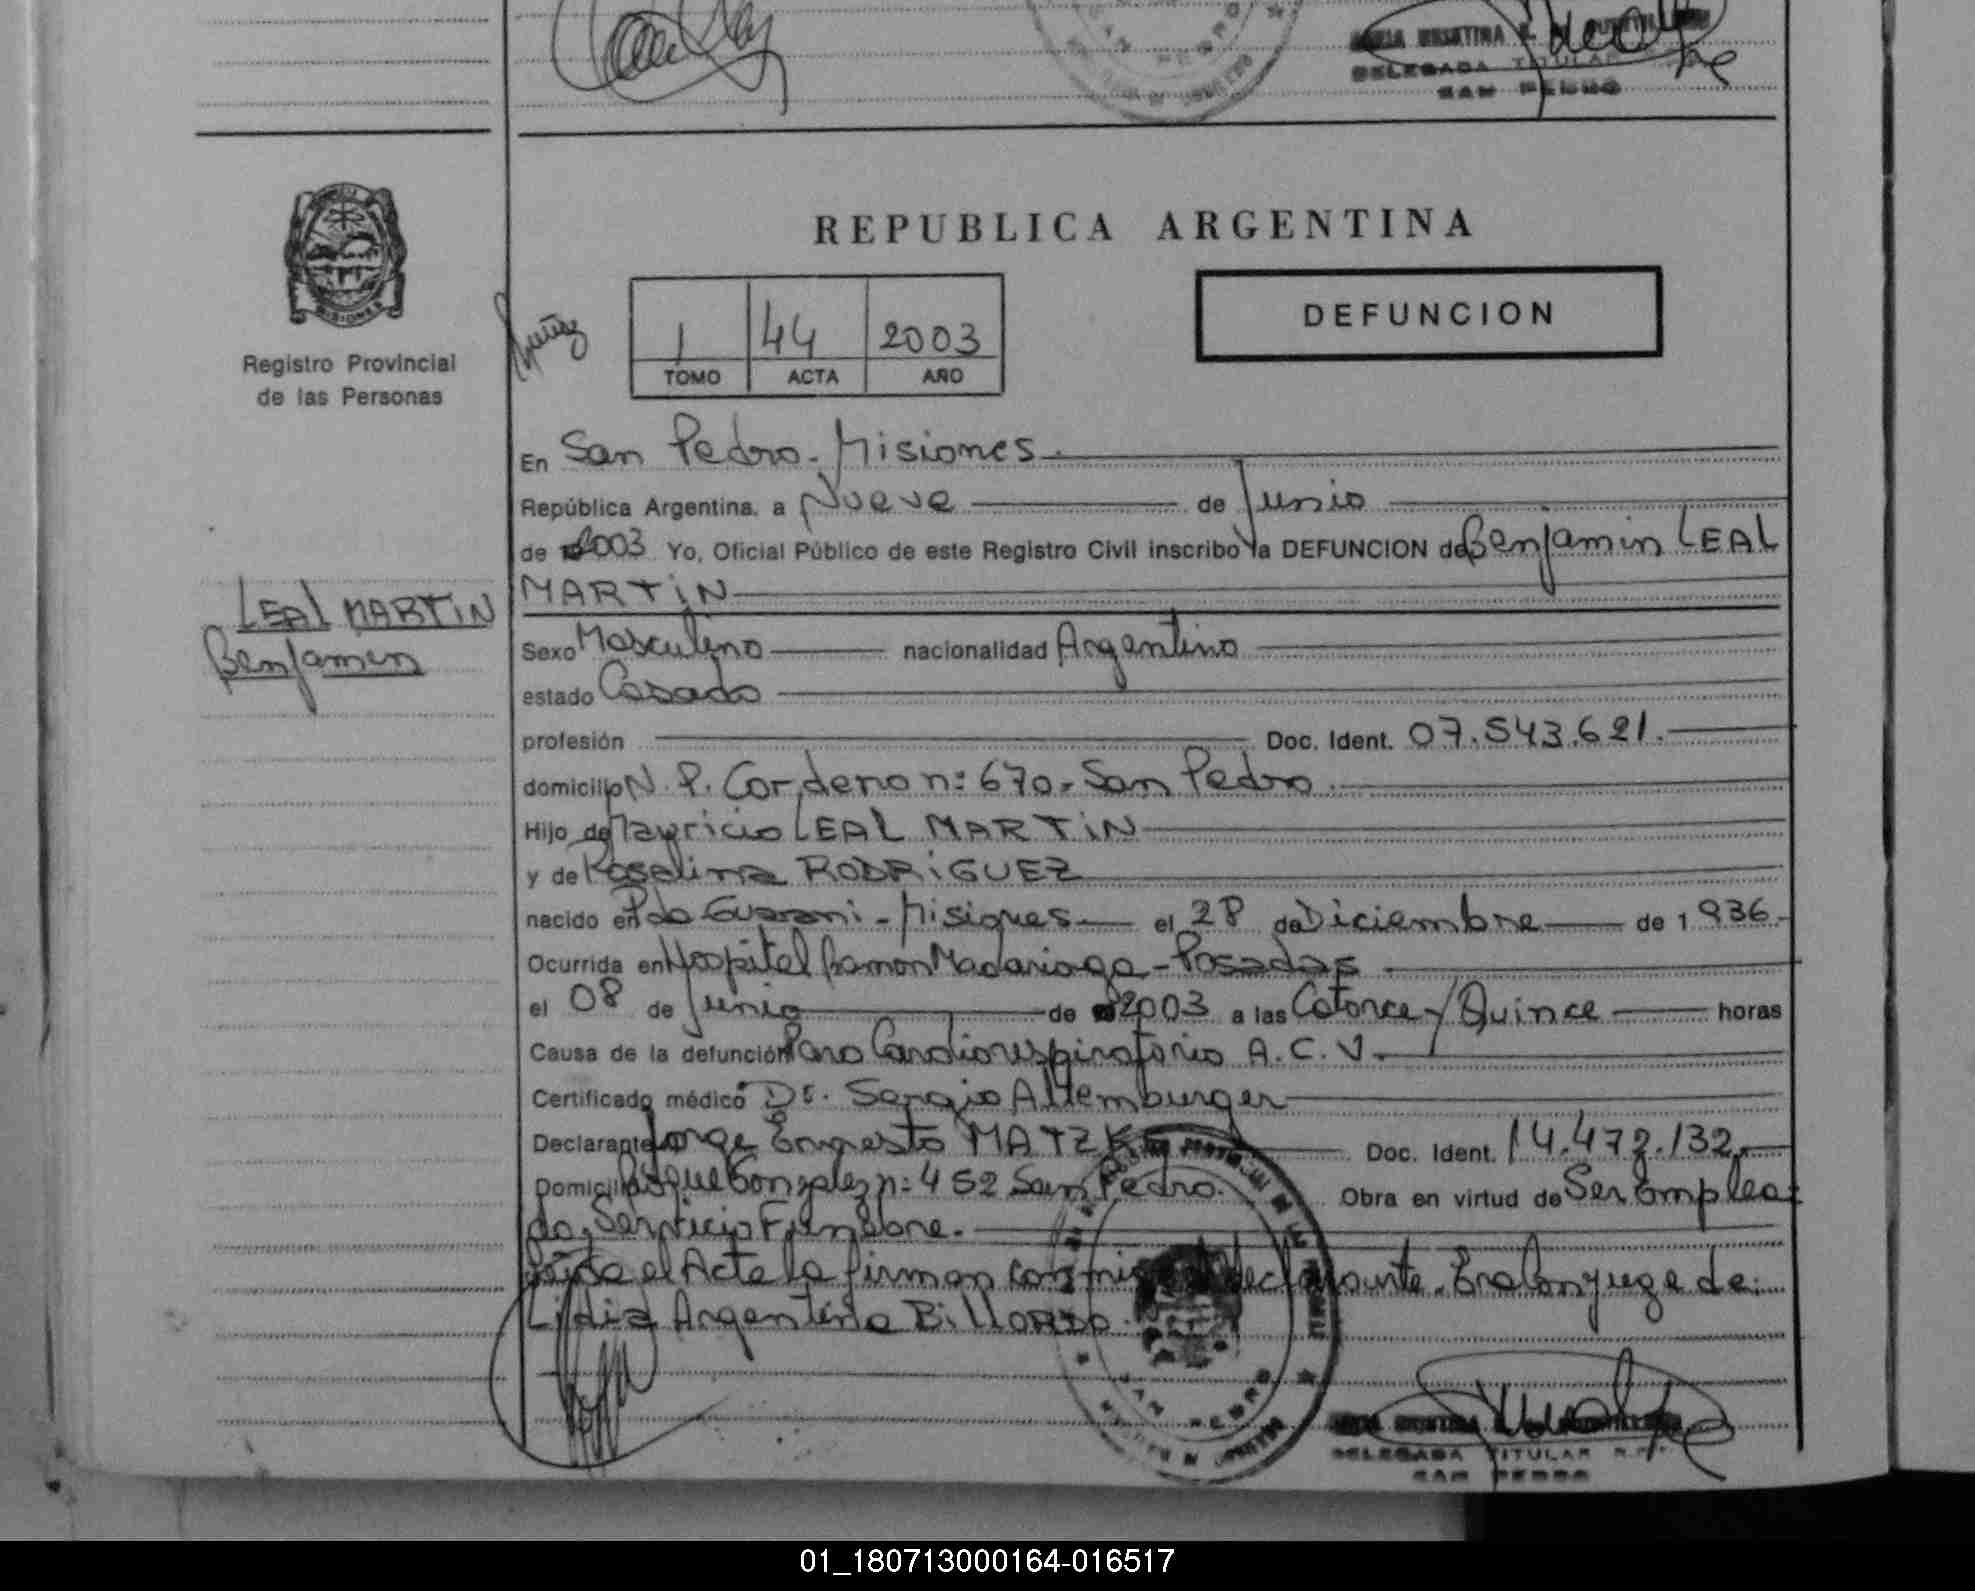 DELEGADA TITULAR
SAN PEDRO
REPUBLICA ARGENTINA
DEFUNCION
1 44 2003
TOMO ACTA AÑO
MISIONES
Registro Provincial
de las Personas
En San Pedro - Misiones
República Argentina, a Nueve de Junio
de 2003 Yo, Oficial Público de este Registro Civil inscribo la DEFUNCION de Benjamin LEAL
MARTIN
LEAL MARTIN
Benjamin
Sexo Masculino nacionalidad Argentino
estado Casado
profesión Doc. Ident. 07.543.621.
domicilio N. P. Cordero n: 670 - San Pedro
Hijo de Mauricio LEAL MARTIN
y de Rosalina RODRIGUEZ
nacido en Pdo Guarani - Misiones el 28 de Diciembre de 1 936.
Ocurrida en Hospital Ramon Madariaga - Posadas
el 08 de Junio de 2003 a las Catorce y Quince horas
Causa de la defunción Paro Cardiorespiratorio A.C.V.
Certificado médico Dr. Sergio Altemburger
Declarante Jorge Ernesto MATZK Doc. Ident. 14.472.132.
Domicilio Roque Gonzalez n: 452 San Pedro. Obra en virtud de Ser Emplea
do, Servicio Funebre.
el Acta la firman conmigo declarante. Era Conyuge de:
Lidia Argentina Billordo.
SAN PEDRO
DELEGADA TITULAR
SAN PEDRO
01_180713000164-016517